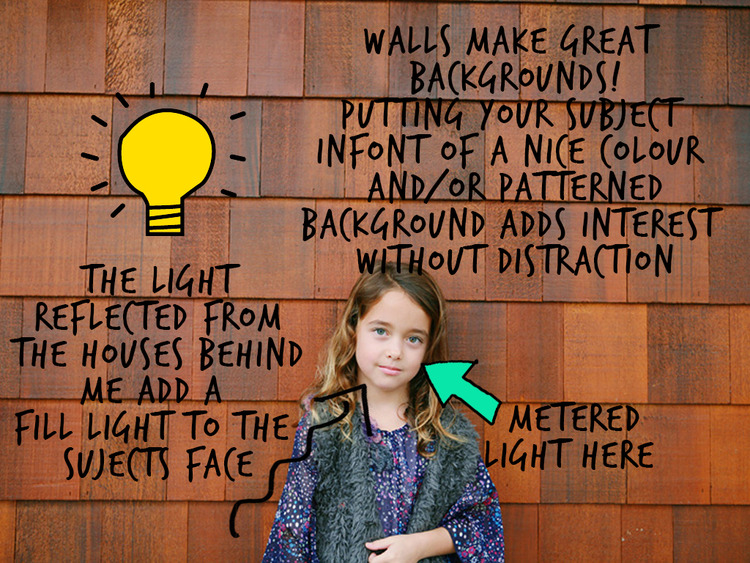 WALLS MAKE GREAT
BACKGROUNDS!
PUTTING YOUR SUBJECT
INFONT OF A NICE COLOUR
AND/OR PATTERNED
BACKGROUND ADDS INTEREST
WITHOUT DISTRACTION
THE LIGHT
REFLECTED FROM
THE HOUSES BEHIND
ME ADD A
FILL LIGHT TO THE
SUJECTS FACE
METERED
LIGHT HERE